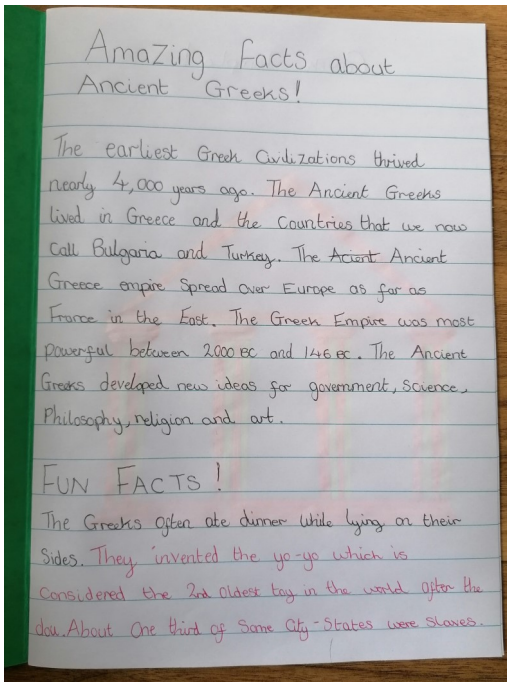 Amazing Facts about
Ancient Greeks!
The earliest Greek Civilizations thrived
nearly 4,000 years ago. The Ancient Greeks
lived in Greece and the Countries that we now
Call Bulgaria and Turkey. The Acient Ancient
Greece empire Spread over Europe as far as
France in the East. The Greek Empire was most
powerful between 2000 BC and 146 BC. The Ancient
Greeks developed new ideas for government, Science,
Philosophy, religion and art.
FUN FACTS!
The Greeks often ate dinner while lying on their
Sides. They invented the yo-yo which is
Considered the 2nd oldest toy in the world after the
dou. About One third of Some City-States were slaves.